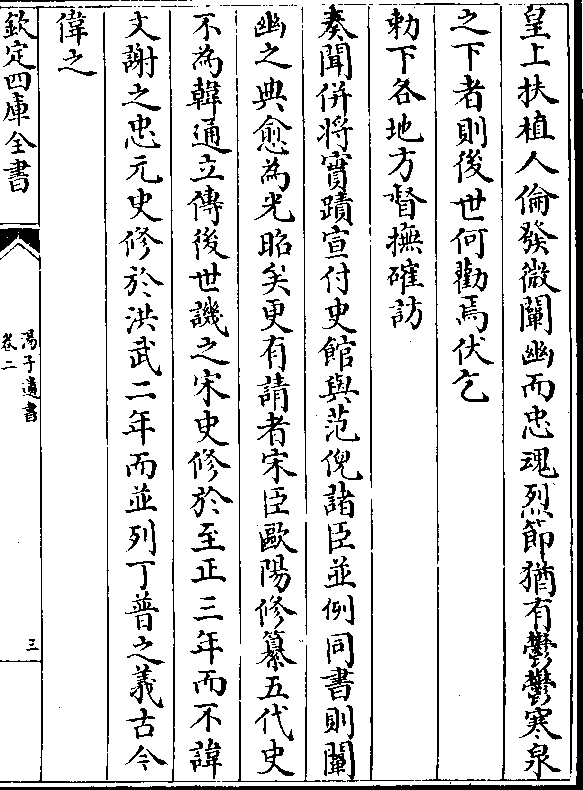 皇上扶植人倫發微闡幽而忠魂烈節猶有鬱鬱寒泉
之下者則後世何勸焉伏乞
勅下各地方督撫確訪
奏聞併將實蹟宣付史館與范倪諸臣並例同書則闡
幽之典愈為光昭矣更有請者宋臣歐陽修纂五代史
不為韓通立傳後世譏之宋史修於至正三年而不諱
文謝之忠元史修於洪武二年而並列丁普之義古今
偉之
欽定四庫全書
湯子遺書
卷二
三